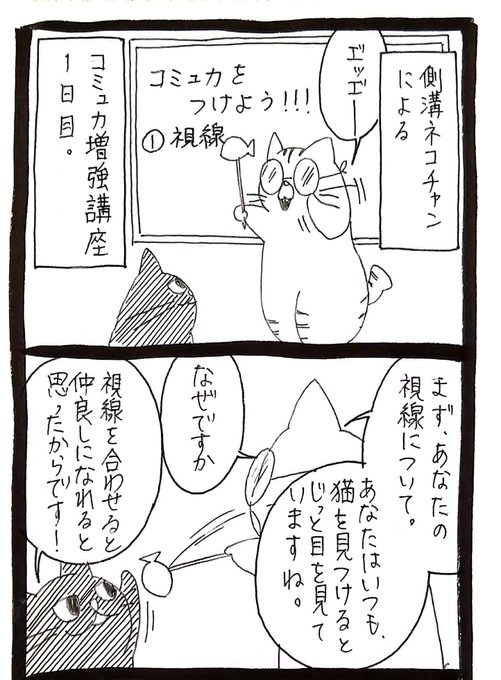 側溝ネコチャン
による
エッエー
コミュカを
つけよう!!!
①視線
コミュカ増強講座
1日目。
まず、あなたの
視線について。
あなたはいつも、
猫を見つけると
じっと目を見て
いますね。
なぜですか
視線を合わせると
仲良しになれると
思ったからです!